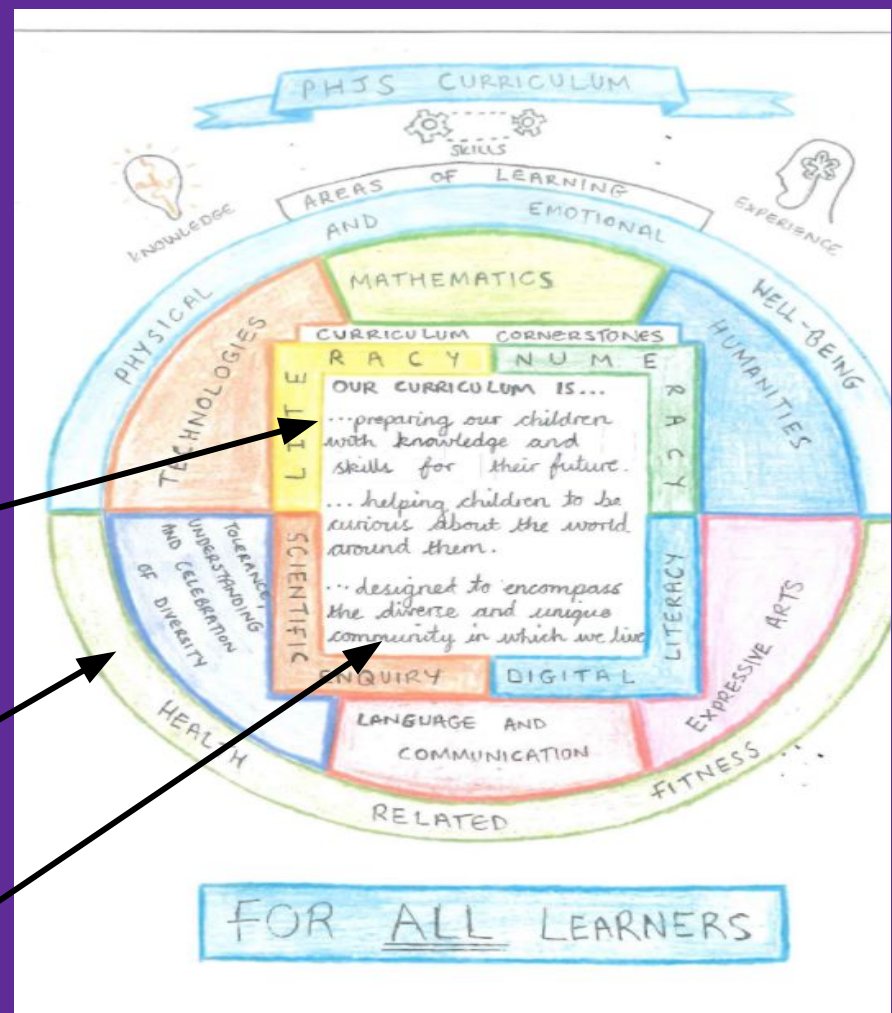 PHJS CURRICULUM
SKILLS
KNOWLEDGE
EXPERIENCE
AREAS OF LEARNING
PHYSICAL AND EMOTIONAL WELL-BEING
TECHNOLOGIES
MATHEMATICS
HUMANITIES
CURRICULUM CORNERSTONES
LITERACY
NUMERACY
OUR CURRICULUM IS...
...preparing our children
with knowledge and
skills for their future.
... helping children to be
curious about the world
around them.
... designed to encompass
the diverse and unique
community in which we live
SCIENTIFIC ENQUIRY
DIGITAL LITERACY
TOLERANCE,
UNDERSTANDING
AND CELEBRATION
OF DIVERSITY
LANGUAGE AND
COMMUNICATION
EXPRESSIVE ARTS
HEALTH RELATED FITNESS
FOR ALL LEARNERS